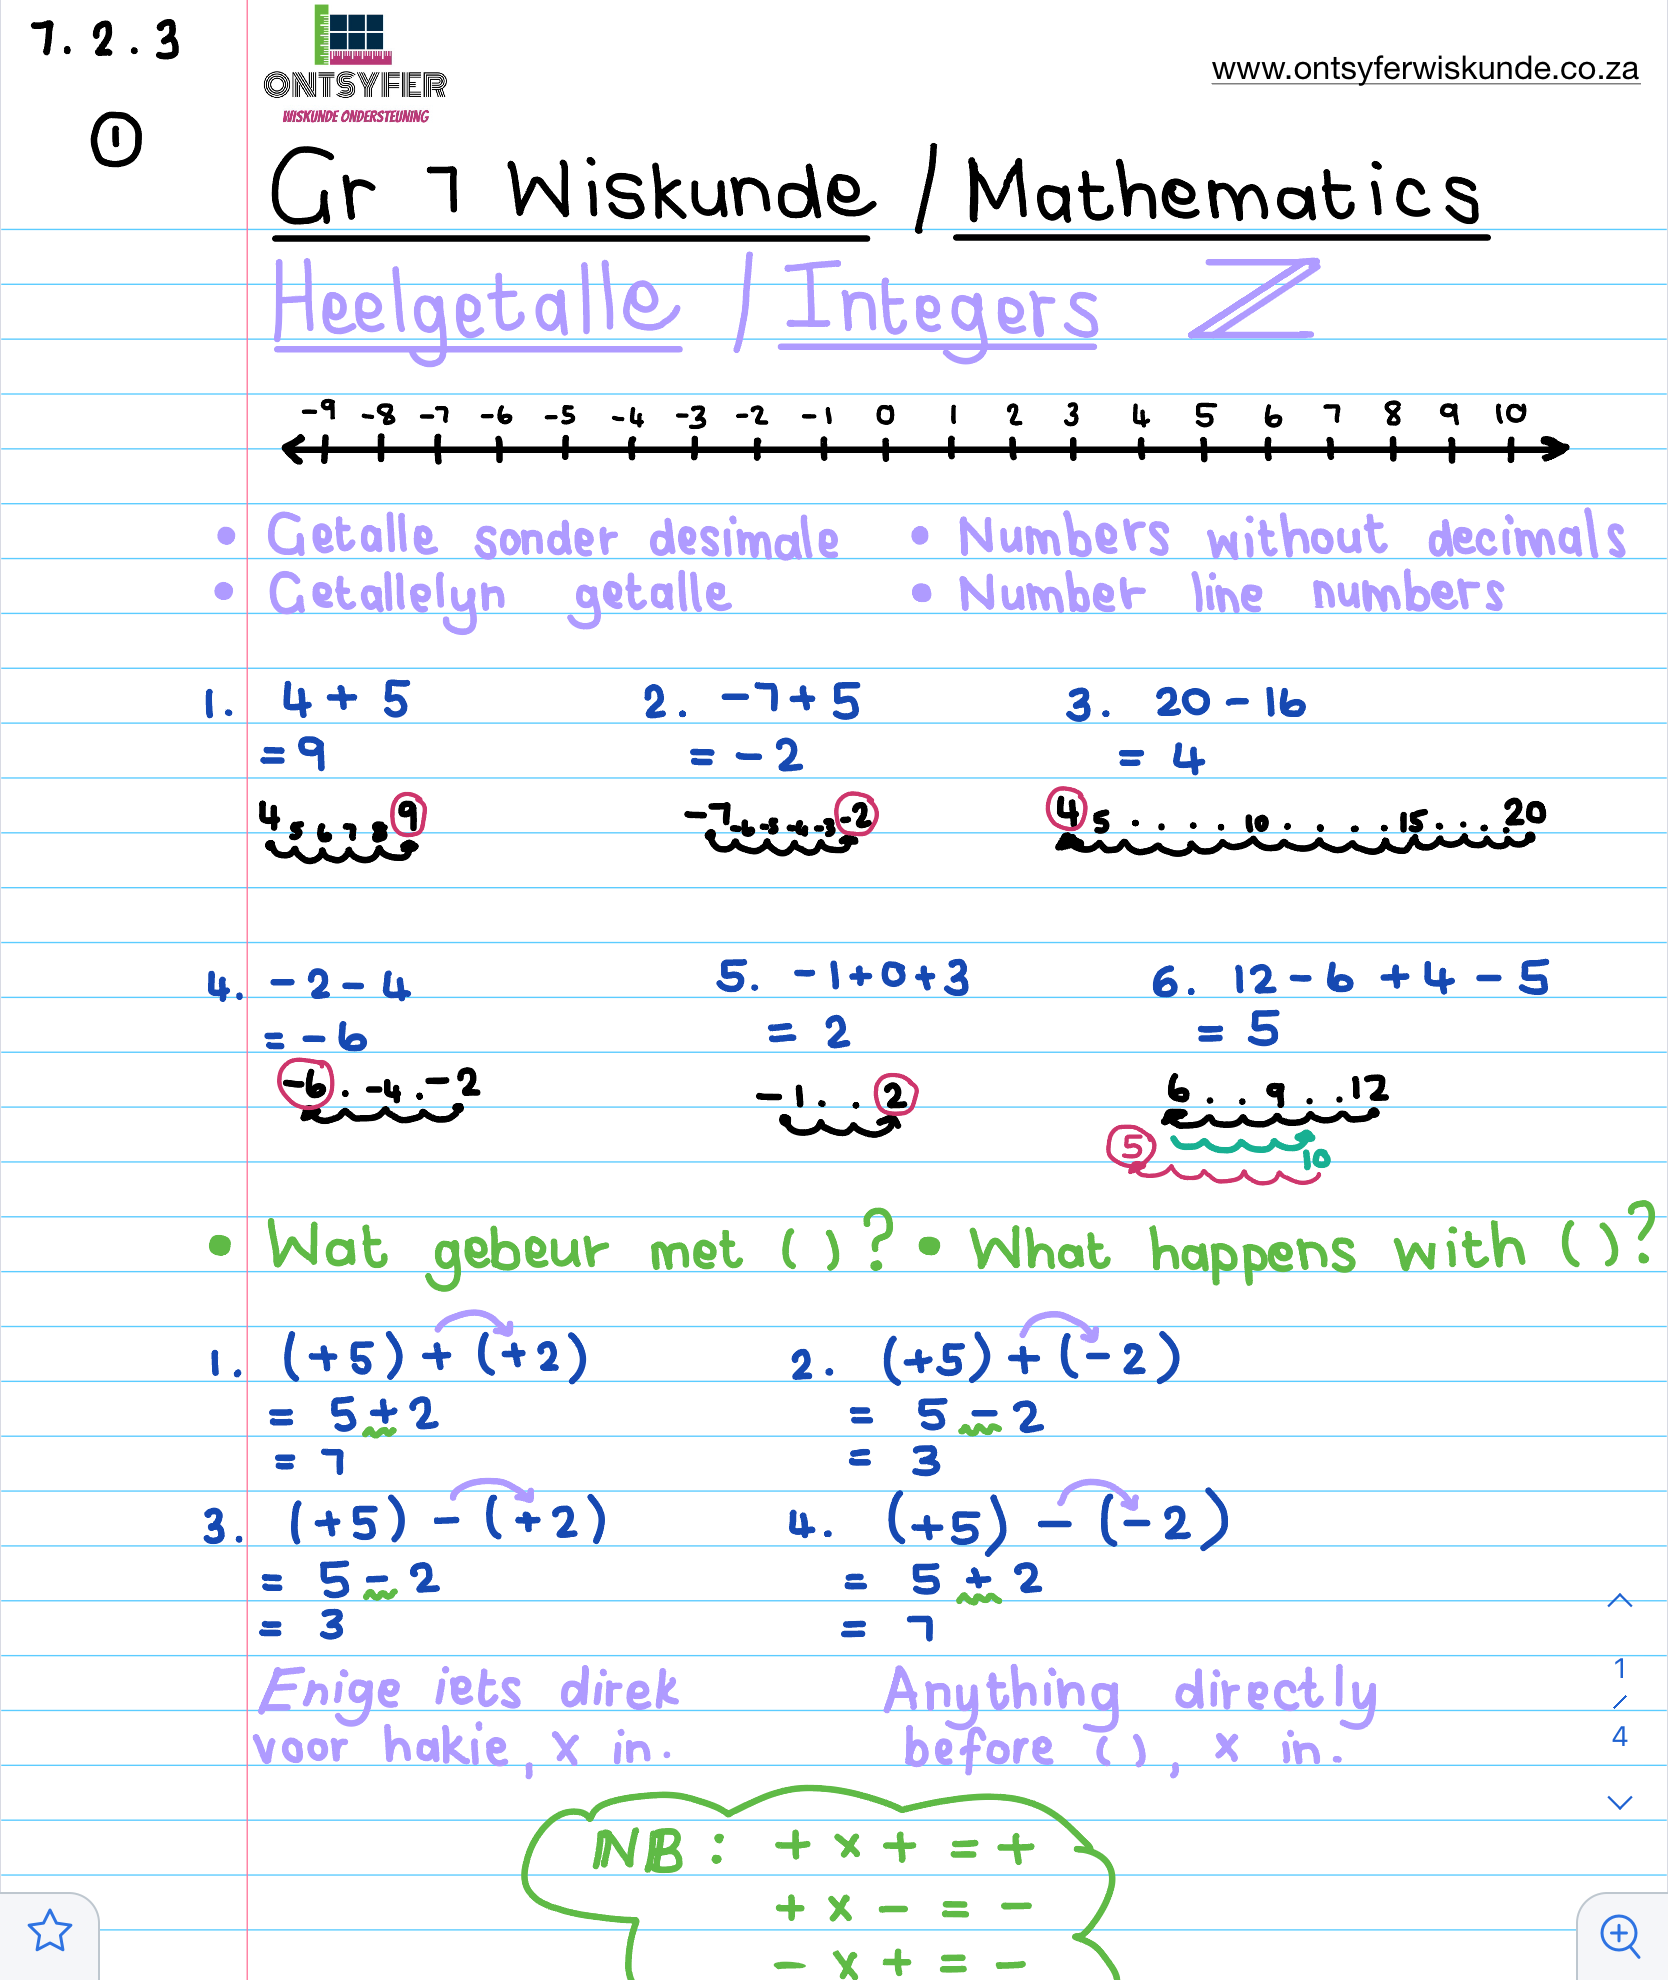 7.2.3
ONTSYFER
WISKUNDE ONDERSTEUNING
www.ontsyferwiskunde.co.za
1
Gr 7 Wiskunde / Mathematics
Heelgetalle / Integers ℤ
-9 -8 -7 -6 -5 -4 -3 -2 -1 0 1 2 3 4 5 6 7 8 9 10
• Getalle sonder desimale • Numbers without decimals
• Getallelyn getalle • Number line numbers
1. 4 + 5 2. -7 + 5 3. 20 - 16
= 9 = -2 = 4
4 5 6 7 8 9 -7 -6 -5 -4 -3 -2 4 5 . . . . 10 . . . . 15 . . . . 20
4. -2 - 4 5. -1 + 0 + 3 6. 12 - 6 + 4 - 5
= -6 = 2 = 5
-6 . -4 . -2 -1 . . 2 6 . . 9 . . 12
5 10
• Wat gebeur met ( )? • What happens with ( )?
1. (+5) + (+2) 2. (+5) + (-2)
= 5 + 2 = 5 - 2
= 7 = 3
3. (+5) - (+2) 4. (+5) - (-2)
= 5 - 2 = 5 + 2
= 3 = 7
Enige iets direk Anything directly
voor hakie, x in. before ( ), x in.
1
/
4
NB: + x + = +
+ x - = -
- x + = -